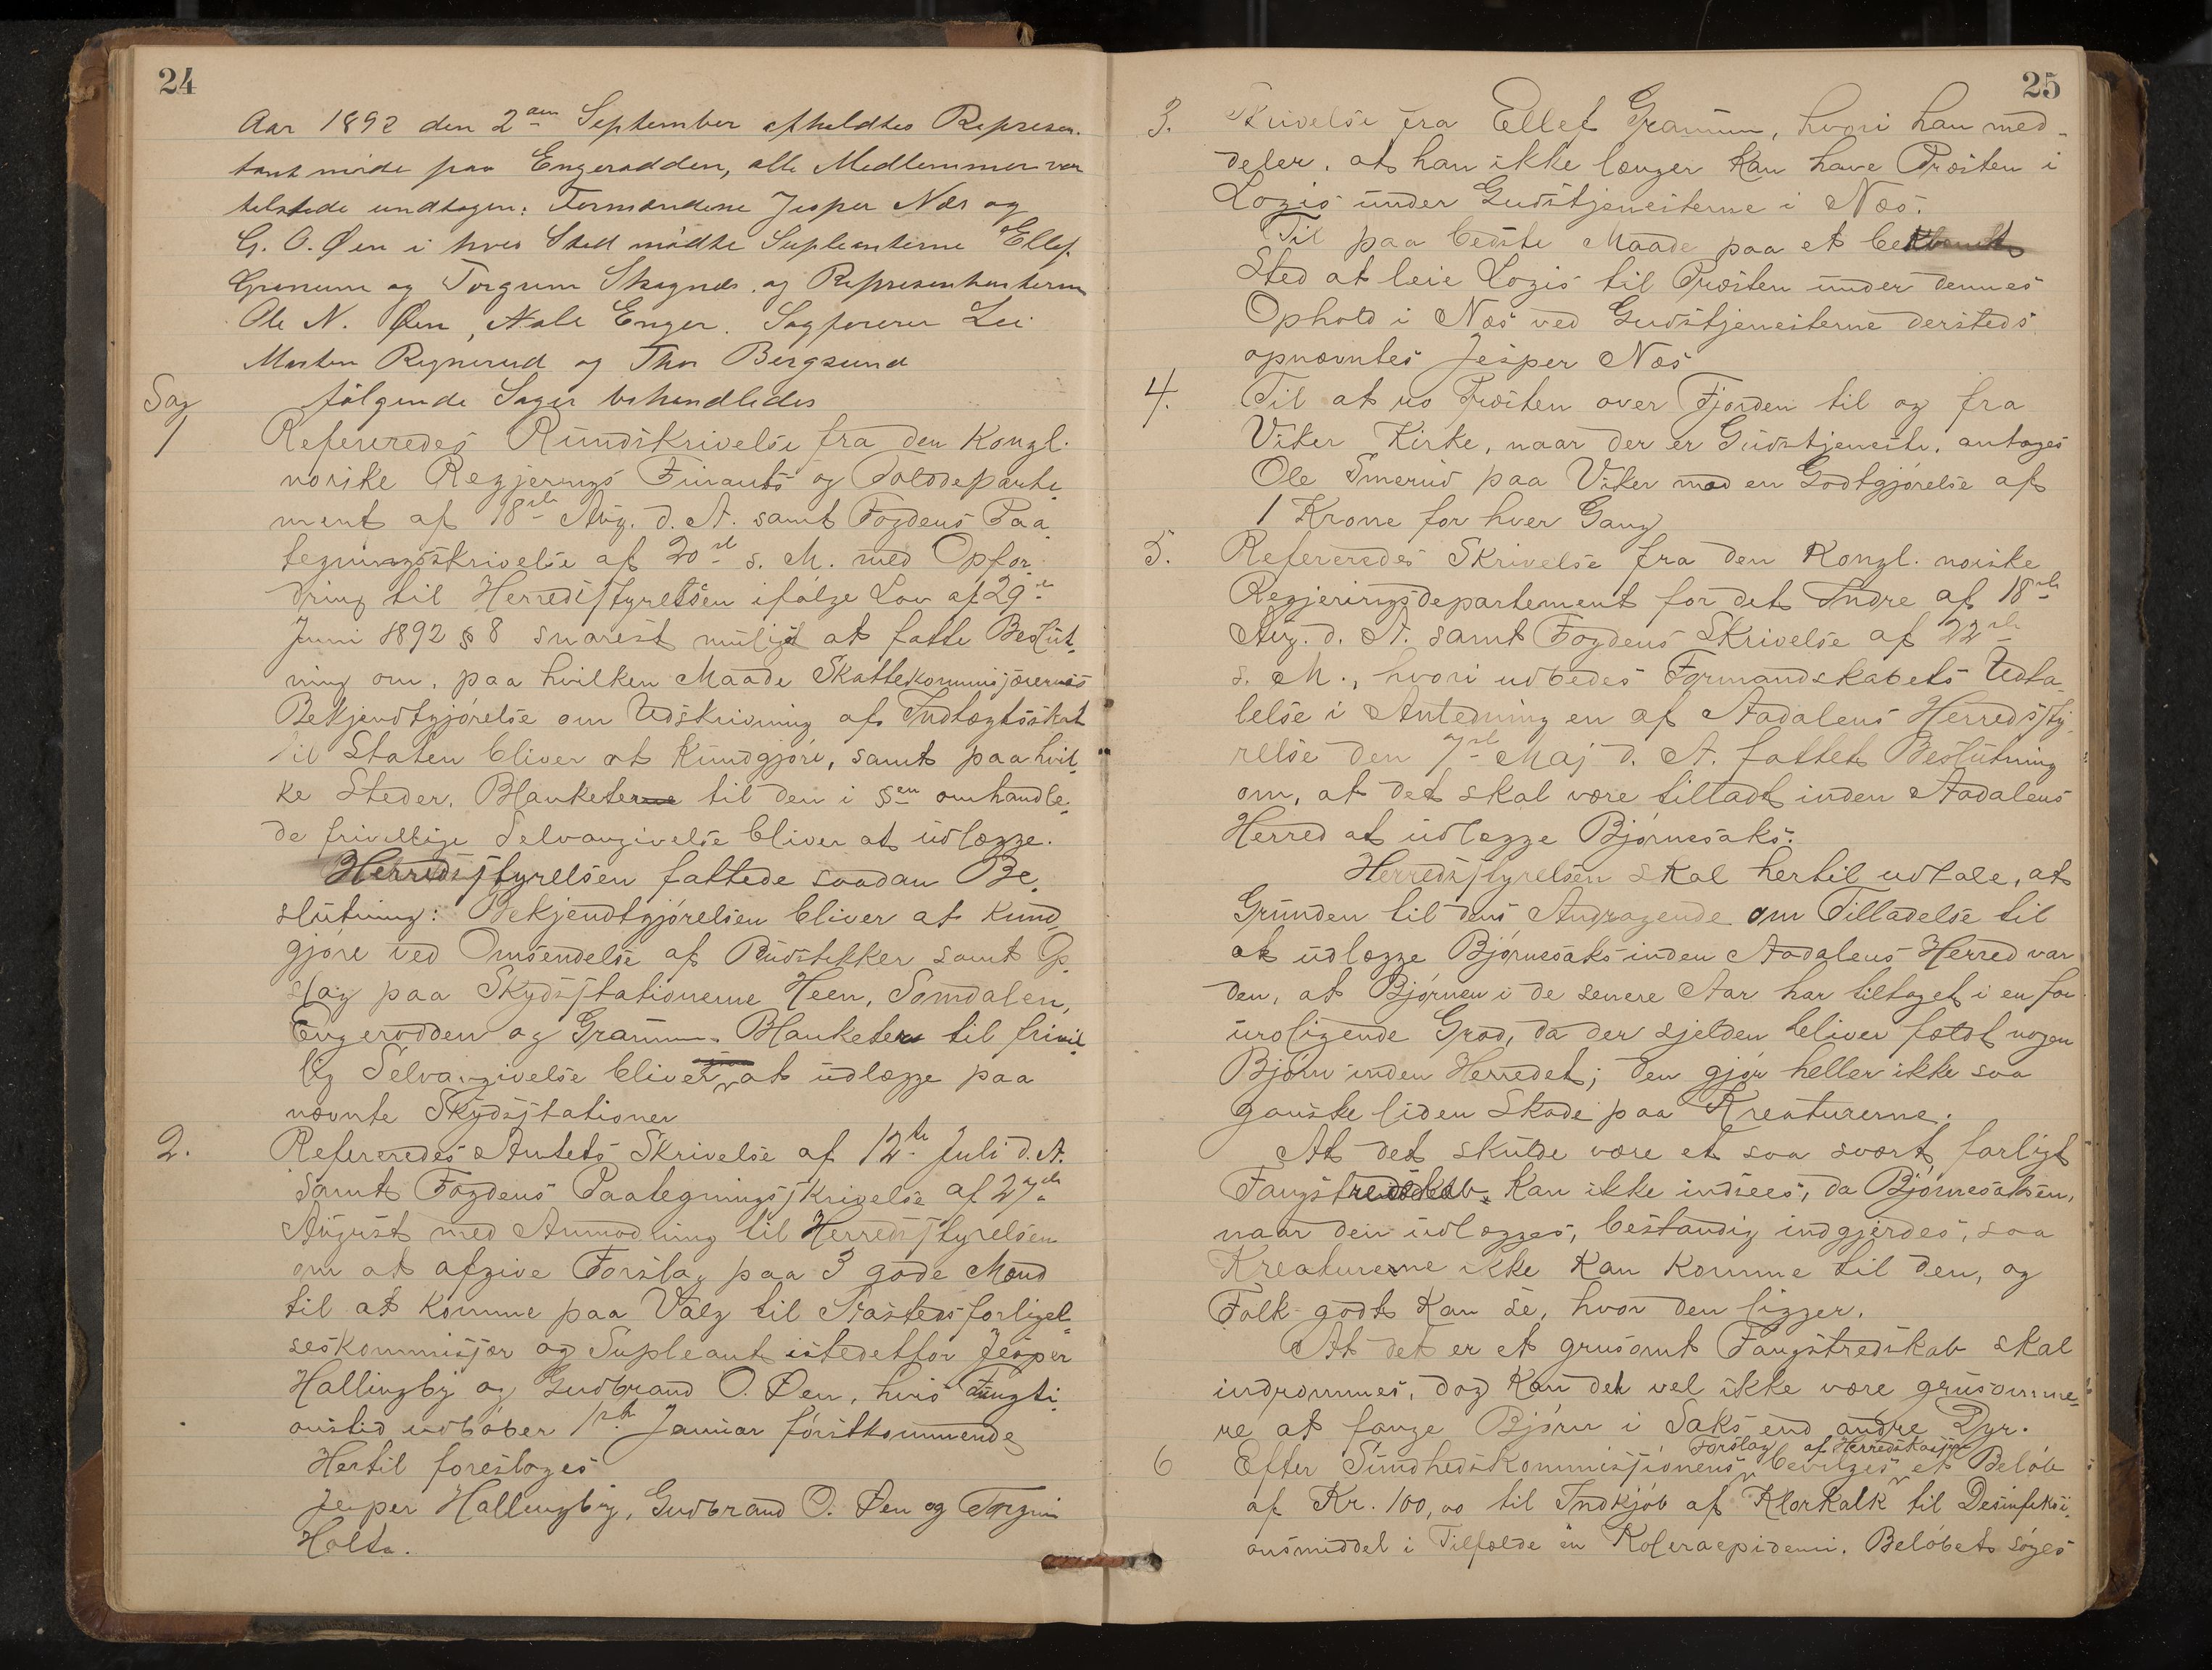 24
Aar 1892 den 2den September afholdtes Represen-
tantmöde paa Engerodden, alle Medlemmer var
tilstede undtagen: Formændene Jesper Næs og
G. O. Øen i hvis Sted mödte Supleanterne Ellef
Granum og Torgrim Skagnæs og Representanterne
Ole N. Øen, Enger. Sagförerer Lie
Morten Rynerud og Thor Bergsund
fölgende Sager behandledes
Sag
1 Refereredes Rundskrivelse fra den Kongl.
norske Regjerings Finants og Tolddeparte-
ment af 18de Aug. d. A. samt Fogdens Paa
tegningsskrivelse af 20de s. M. med Opfor-
dring til Herredsstyrelsen ifölge Lov af 29de
Juni 1892 § 8 snarest muligt at fatte Beslut-
ning om, paa hvilken Maade Skattekommisjærernes
Bekjendtgjörelse om Udskrivning af Indtægtsskat
til Staten bliver at kundgjöre, samt paa hvil-
ke Steder, Blanketerne til den i § omhandle-
de frivillige Selvangivelse bliver at udlægge.
Herredsstyrelsen fattede saadan Be-
slutning: Bekjendtgjörelsen bliver at kund-
gjöre ved Omsendelse af Budstikker samt Op-
slag paa Skydsstationerne Heen, Somdalen,
Engerodden og Granum. Blanketer til frivil-
lig Selvangivelse bliver at udlægge paa
nævnte Skydsstationer
2. Refereredes Amtets Skrivelse af 12te Juli d. A.
samt Fogdens Paategningsskrivelse af 27de
August med Anmodning til Herredsstyrelsen
om at afgive Forslag paa 3 gode Mænd
til at komme paa Valg til Præstedsforligel-
seskommisjær og Supleant istedetfor Jesper
Hallingby og Gudbrand O. Øen, hvis Fungti-
onstid udlöber 1ste Januar förstkommende
Hertil foresloges
Jesper Hallingby, Gudbrand O. Øen og Torgrim
Holte.
25
3. Skrivelse fra Ellef Granum, hvori han med-
deler, at han ikke længer kan have Præsten i
Logis under Gudstjenesterne i Næs.
Til paa bedste Maade paa et bekvemt
Sted at leie Logis til Præsten under dennes
Ophold i Næs ved Gudstjenesterne dersteds
opnævntes Jesper Næs
4. Til at ro Præsten over Fjorden til og fra
Viker Kirke, naar der er Gudstjeneste, antages
Ole Smerud paa Viker mod en Godtgjörelse af
1 Krone for hver Gang
5. Refereredes Skrivelse fra den Kongl. norske
Regjeringsdepartement for det Indre af 18de
Aug. d. A. samt Fogdens Skrivelse af 22de
s. M., hvori udbedes Formandskabets Udta-
lelse i Anledning en af Aadalens Herredssty-
relse den 7de Maj d. A. fattet Beslutning
om, at det skal være tilladt inden Aadalens
Herred at udlægge Björnesaks.
Herredsstyrelsen skal hertil udtale, at
Grunden til dens Andragende om Tilladelse til
at udlægge Björnesaks inden Aadalens Herred var
den, at Björnen i de senere Aar har tiltaget i en for-
uroligende Grad, da der sjelden bliver fældt nogen
Björn inden Herredet; den gjör heller ikke saa
ganske liden Skade paa Kreaturerne.
At det skulde være et saa svært farligt
Fangstredskab, kan ikke indsees, da Björnesaksen,
naar den udlægges, bestandig indgjerdes, saa
Kreaturerne ikke kan komme til den, og
Folk godt kan se, hvor den ligger.
At det er et grusomt Fangstredskab skal
indrömmes, dog kan det vel ikke være grusomme-
re at fange Björn i Saks end andre Dyr.
6 Efter Sundhedskommissjonens Forslag bevilges af Herredskassen et Belöb
af Kr. 100,00 til Indkjöb af Klorkalk til Desinfeksi-
onsmiddel i Tilfælde en Koleraepidemi. Belöbet söges